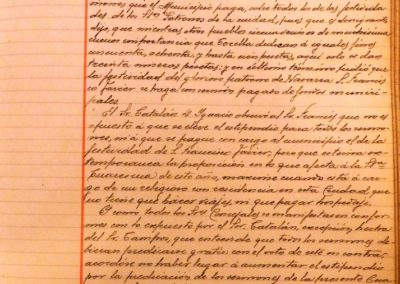 mones que el Municipio paga, sobre todo los de las festivida
des de los Stos Patronos de la ciudad, pues que
dijo, que mientras otros pueblos de muchísima
menos importancia que Tudela dedican á iguales fines
cincuenta, ochenta, y hasta cien pesetas, aquí solo se dan
treinta pesetas; y en último término pidió que
la festividad del glorioso patrono de Navarra S. Francisco
Javier se haga con sermón pagado de fondos munici
pales.
El Sr. Catalán D. Ignacio observó al Sr. que no se
opuesto á que se eleve el estipendio para todos los sermo
nes, ni á que se pague con cargo al municipio el de la
festividad de S. Francisco Javier, pero que estima ex
temporanea la proposición en lo que afecta á la Sta.
Cuaresma de este año, maxime cuando está á car
go de un religioso con residencia en esta Ciudad, que
no tiene que hacer viajes, ni que pagar hospedaje.
Y como todos los Sres Concejales se manifestaron confor
mes con lo expuesto por el Sr. Catalán, excepción hecha
del Sr. que entiende que todos los sermones de
bieran predicarse gratis, con el voto de este en contra,
acordose no haber lugar á aumentar el estipendio
por la predicación de los sermones de la presente Cua